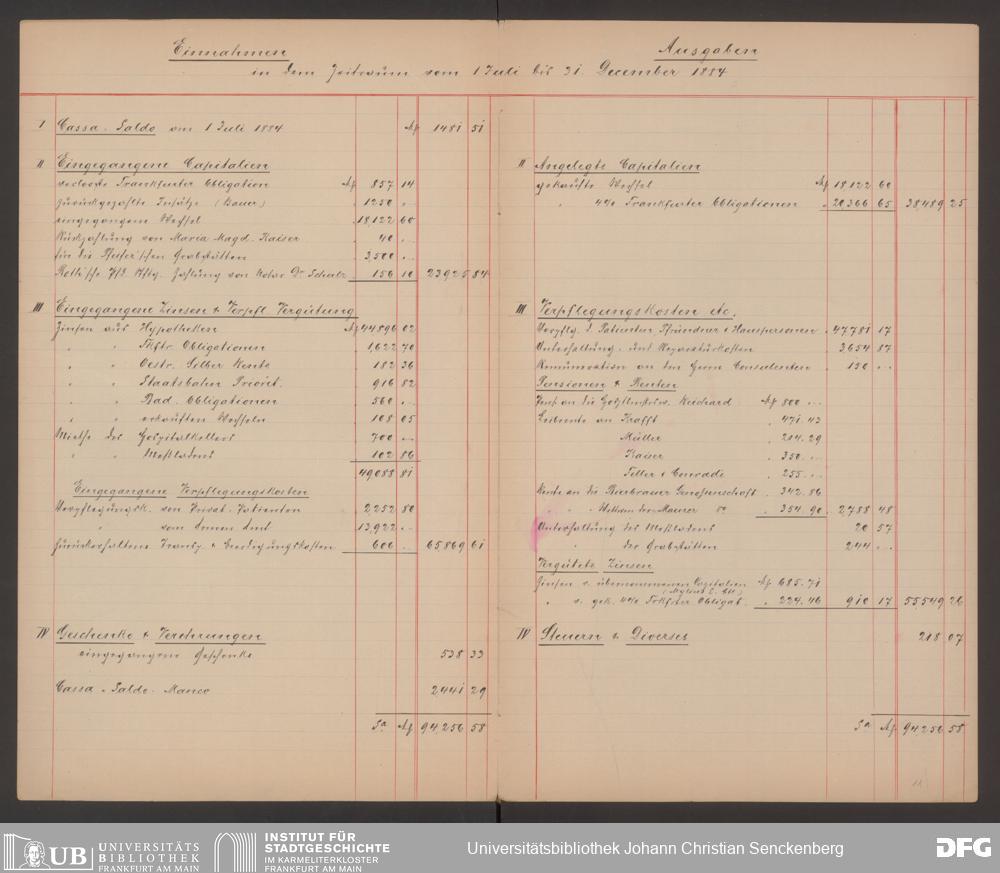 Einnahmen
in dem Zeitraum vom 1 Juli bis 31. December 1884
I Cassa-Saldo am 1 Juli 1884 M 1481 51
II Eingegangene Capitalien
verlooste Frankfurter Obligation M 857 14
zurückgezahlte Insätze (Bauer) 1250 ..
eingegangene Wechsel 18,122 60
Rückzahlung von Maria Magd. Kaiser 40 ..
für die Pfeifer'schen Grabstätten 3,500 ..
Zahlung von Notar Dr. 156 10 23925 84
III Eingegangene Zinsen & Verpfl. Vergütung
Zinsen aus Hypotheken M 44896 02
" " Fkftr. Obligationen 1,622 70
" " Oestr. Silber Rente 182 36
" " Staatsbahn Priorit. 916 82
" " Bad. Obligationen 560 ..
" " verkauften Wechseln 108 05
Miethe des Hospitalkellers 700 ..
" " Meßladens 102 86
49,088 81
Eingegangene Verpflegungskosten
Verpflegungsk. von Privat-Patienten 2252 80
" vom Armen Amt 13,922 ..
Zurückerhaltene Transp. & Beerdigungskosten 606 .. 65869 61
IV Geschenke & Verehrungen
eingegangene Geschenke 538 33
Cassa-Saldo-Manco 2441 29
Sa. M 94,256 58
Ausgaben
II Angelegte Capitalien
gekaufte Wechsel M 18122 60
" 4% Frankfurter Obligationen 20,366 65 38,489 25
III Verpflegungskosten etc.
Verpflg. d. Patienten Pfründner & Hauspersonen 47,781 17
Unterhaltung- und Reparaturkosten 3654 87
Remuneration an den Herrn Consulenten 150 ..
Pensionen & Renten
Pens. an die Reichard M 800 ..
Leibrente an Krafft 471. 43
Müller 214. 29
Kaiser 350 ..
Feller & Conradi 255 ..
Rente an die Bierbrauer Genossenschaft 342. 86
354 90 2788 48
Unterhaltung des Meßladens 20 57
" der Grabstätten 244 ..
Vergütete Zinsen
Zinsen v. übernommenen Capitalien M 685. 71
" v. gek. 4% Frkfurter Obligat. 224. 46 910 17 55549 26
IV Steuern & Diverses 218 07
Sa M 94,256 58
UB UNIVERSITÄTS
BIBLIOTHEK
FRANKFURT AM MAIN
INSTITUT FÜR
STADTGESCHICHTE
IM KARMELITERKLOSTER
FRANKFURT AM MAIN
Universitätsbibliothek Johann Christian Senckenberg
DFG